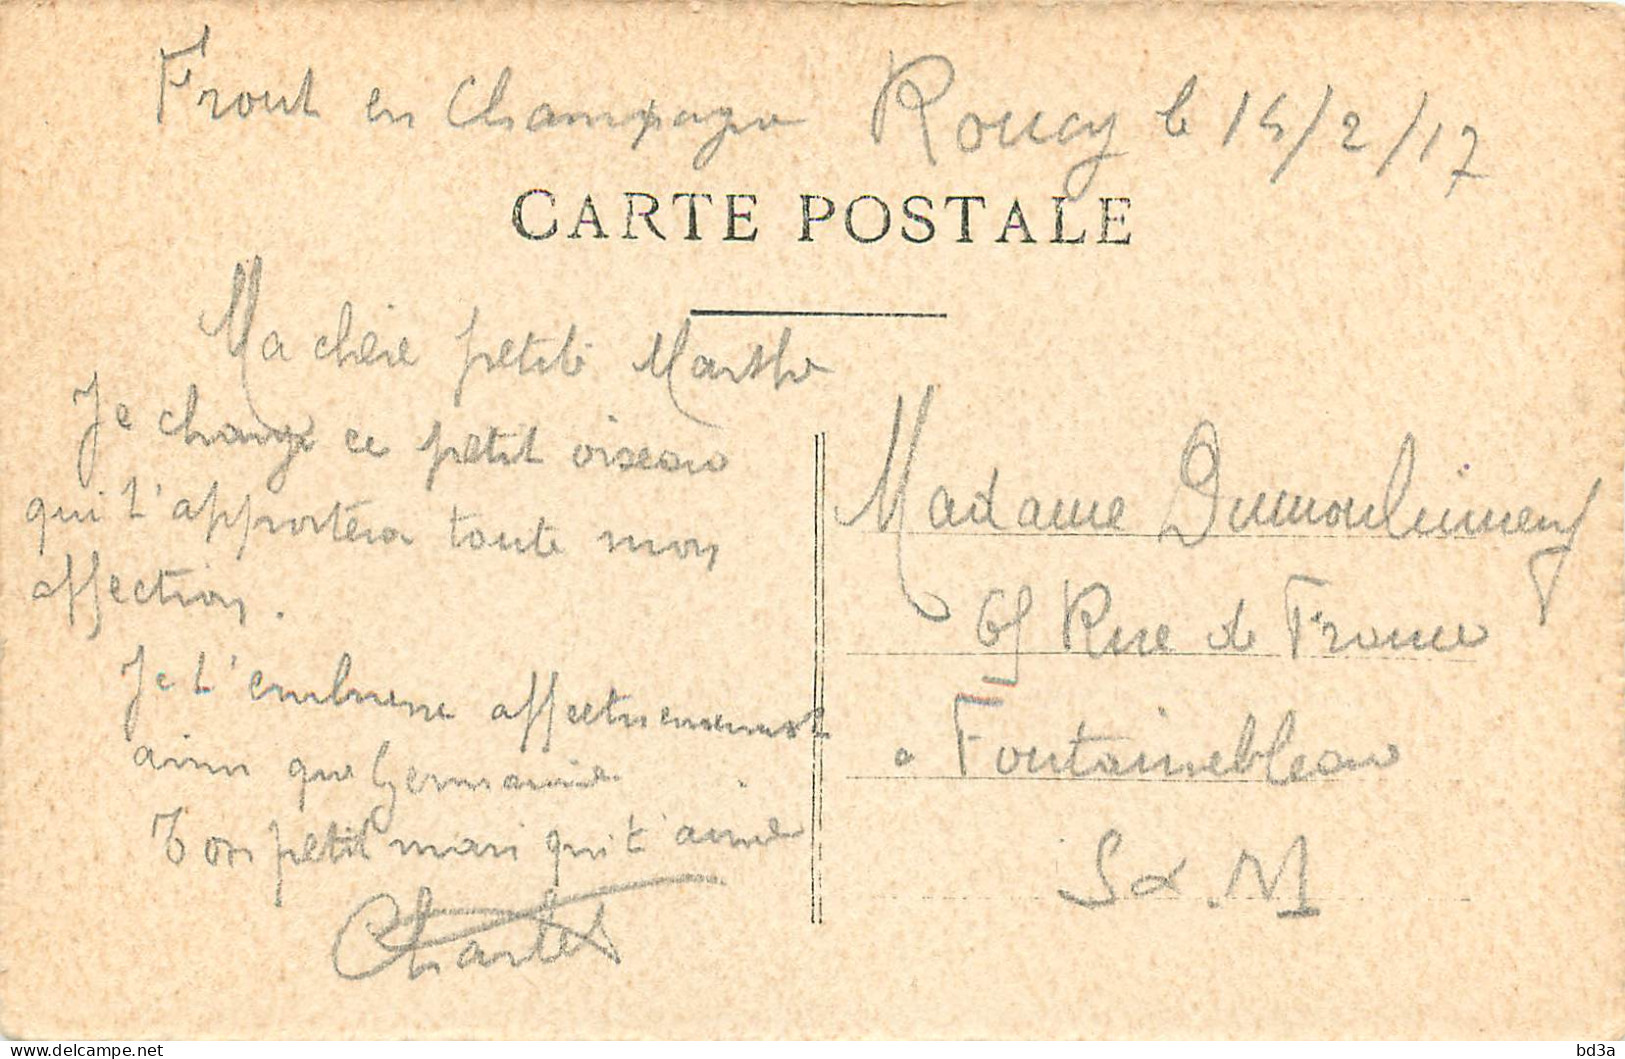 Front en Champagne Roucy le 15/2/17
CARTE POSTALE
Ma chère petite Marthe
Je charge ce petit oiseau
qui t'apportera toute mon
affection.
Je t'embrasse affectueusement
ainsi que Germaine.
Ton petit mari qui t'aime
Charles
Madame
65 Rue de France
a Fontainebleau
S & M
delcampe.net
bd3a